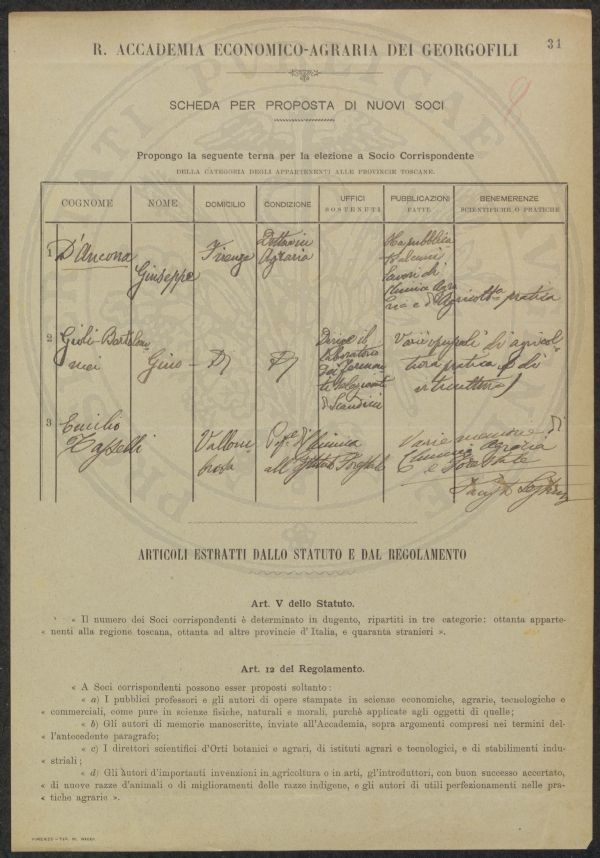 31
R. ACCADEMIA ECONOMICO-AGRARIA DEI GEORGOFILI
8
SCHEDA PER PROPOSTA DI NUOVI SOCI
Propongo la seguente terna per la elezione a Socio Corrispondente
DELLA CATEGORIA DEGLI APPARTENENTI ALLE PROVINCIE TOSCANE.
COGNOME NOME DOMICILIO CONDIZIONE UFFICI SOSTENUTI PUBBLICAZIONI FATTE BENEMERENZE SCIENTIFICHE O PRATICHE
1 D'Ancona Giuseppe Firenze Dottore in Agraria Ha pubblicato alcuni lavori di chimica agraria e d'Agricoltra pratica
2 Gioli-Bartolommei Gino Dirige il laboratorio dei di Scandicci Varii opuscoli di agricoltura pratica e di
3 Emilio Passelli Vallombrosa Chimica all' Istituto Forestale Varie memorie di Chimica Agraria e Forestale
ARTICOLI ESTRATTI DALLO STATUTO E DAL REGOLAMENTO
Art. V dello Statuto.
« Il numero dei Soci corrispondenti è determinato in dugento, ripartiti in tre categorie: ottanta apparte-
« nenti alla regione toscana, ottanta ad altre provincie d'Italia, e quaranta stranieri ».
Art. 12 del Regolamento.
« A Soci corrispondenti possono esser proposti soltanto:
« a) I pubblici professori e gli autori di opere stampate in scienze economiche, agrarie, tecnologiche e
« commerciali, come pure in scienze fisiche, naturali e morali, purchè applicate agli oggetti di quelle;
« b) Gli autori di memorie manoscritte, inviate all'Accademia, sopra argomenti compresi nei termini del-
« l'antecedente paragrafo;
« c) I direttori scientifici d'Orti botanici e agrari, di istituti agrari e tecnologici, e di stabilimenti indu-
« striali;
« d) Gli autori d'importanti invenzioni in agricoltura o in arti, gl'introduttori, con buon successo accertato,
« di nuove razze d'animali o di miglioramenti delle razze indigene, e gli autori di utili perfezionamenti nelle pra-
« tiche agrarie ».